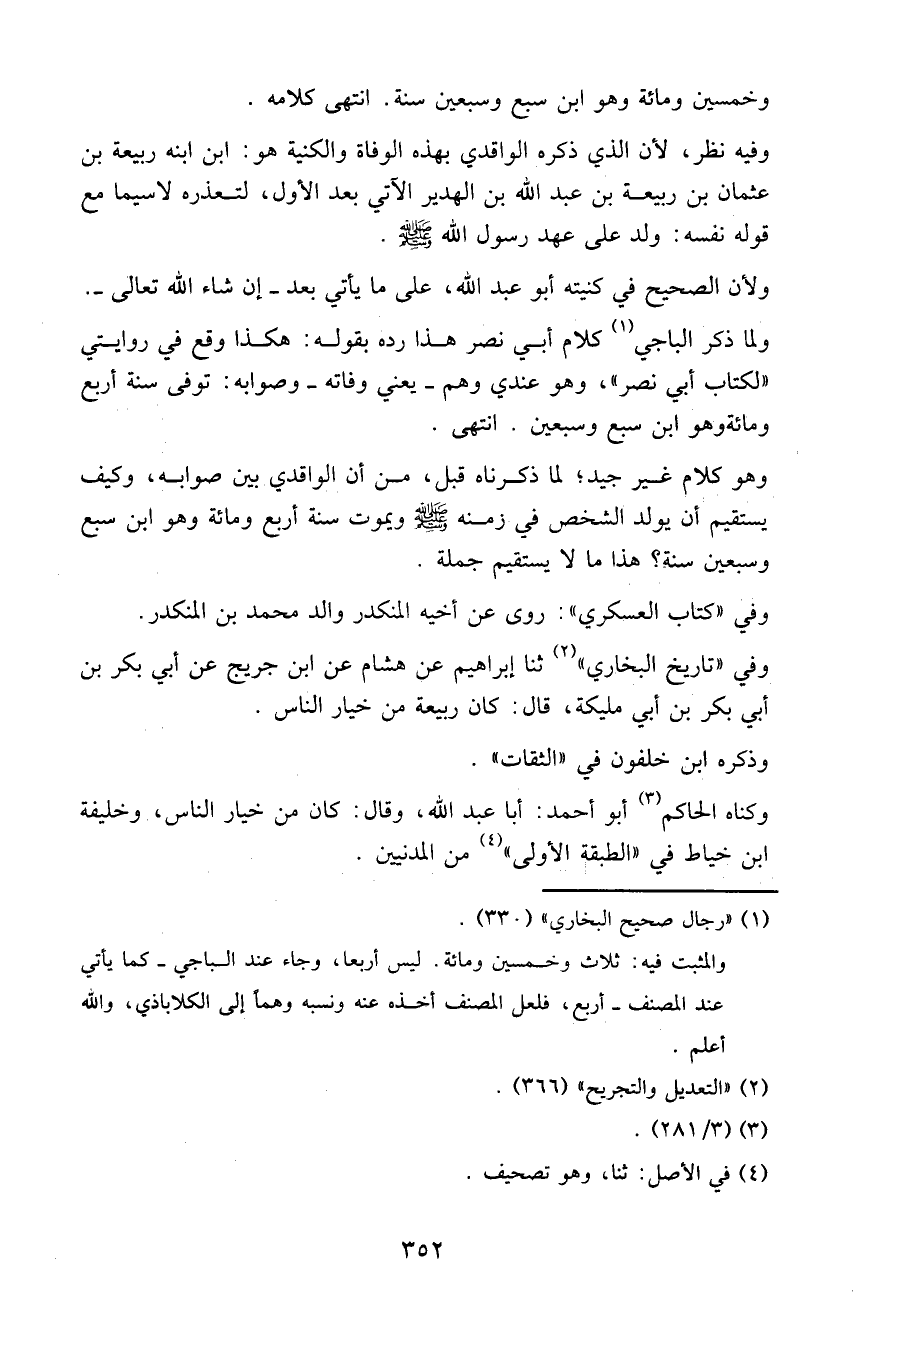 وخمسين ومائة وهو ابن سبع وسبعين سنة. انتهى كلامه .
وفيه نظر، لأن الذي ذكره الواقدي بهذه الوفاة والكنية هو: ابن ابنه ربيعة بن
عثمان بن ربيعة بن عبد الله بن الهدير الآتي بعد الأول، لتعذره لاسيما مع
قوله نفسه: ولد على عهد رسول الله ﷺ .
ولأن الصحيح في كنيته أبو عبد الله، على ما يأتي بعد ـ إن شاء الله تعالى ـ.
ولما ذكر الباجي(١) كلام أبي نصر هذا رده بقوله: هكذا وقع في روايتي
«لكتاب أبي نصر»، وهو عندي وهم ـ يعني وفاته ـ وصوابه: توفى سنة أربع
ومائةوهو ابن سبع وسبعين . انتهى .
وهو كلام غير جيد؛ لما ذكرناه قبل، من أن الواقدي بين صوابه، وكيف
يستقيم أن يولد الشخص في زمنه ﷺ ويموت سنة أربع ومائة وهو ابن سبع
وسبعين سنة؟ هذا ما لا يستقيم جملة .
وفي «كتاب العسكري»: روى عن أخيه المنكدر والد محمد بن المنكدر.
وفي «تاريخ البخاري»(٢) ثنا إبراهيم عن هشام عن ابن جريج عن أبي بكر بن
أبي بكر بن أبي مليكة، قال: كان ربيعة من خيار الناس .
وذكره ابن خلفون في «الثقات» .
وكناه الحاكم(٣) أبو أحمد: أبا عبد الله، وقال: كان من خيار الناس، وخليفة
ابن خياط في «الطبقة الأولى»(٤) من المدنيين .
(١) «رجال صحيح البخاري» (٣٣٠) .
والمثبت فيه: ثلاث وخمسين ومائة. ليس أربعا، وجاء عند الباجي ـ كما يأتي
عند المصنف ـ أربع، فلعل المصنف أخذه عنه ونسبه وهماً إلى الكلاباذي، والله
أعلم .
(٢) «التعديل والتجريح» (٣٦٦) .
(٣) (٣/ ٢٨١) .
(٤) في الأصل: ثنا، وهو تصحيف .
٣٥٢